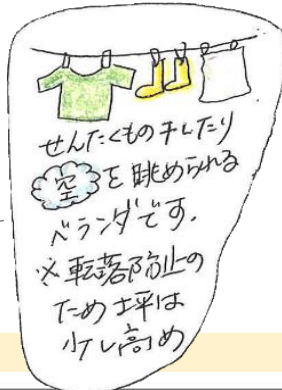 せんたくもの干したり
空を眺められる
ベランダです。
※転落防止の
ため塀は
少し高め